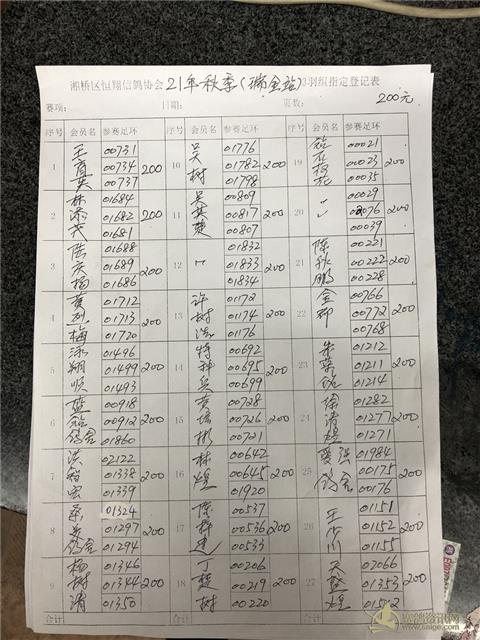 湘桥区恒翔信鸽协会 21年秋季(瑞金站) 3羽组指定登记表
赛项: 日期: 页数: 200元
序号 会员名 参赛足环 序号 会员名 参赛足环 序号 会员名 参赛足环
1 王育英 00731 00734 00737 200
10 吴树 01776 01782 01798 200
19 00021 00023 00035 200
2 林添茂 01684 01682 01681 200
11 吴英楚 00809 00817 00807 200
20 〃 00029 00076 00039 200
3 陆庆杨 01688 01689 01686 200
12 〃 01832 01833 01834 200
21 陈秋鹏 00221 00222 00228 200
4 黄烈梅 01712 01713 01720 200
13 许树浩 01172 01174 01176 200
22 金柳 00766 00772 00768 200
5 泳翔顺 01496 01499 01493 200
14 特种兵 00692 00695 00699 200
23 朱荣铭 01212 01211 01214 200
6 蓝钻鸽舍 00918 00912 01860 200
15 黄瑞彬 00728 00726 00721 200
24 徐清煌 01282 01277 01271 200
7 洪智宏 02122 01338 01339 200
16 林煌 00642 00645 01920 200
25 爱强鸽舍 01984 00175 00176 200
8 鸽舍 01324 01297 01294 200
17 陈群建 00537 00536 00533 200
26 王少川 01151 01152 01155 200
9 杨树清 01346 01344 01350 200
18 丁楚树 00206 00219 00220 200
27 02066 01353 200
合计 合计 合计
www.saige.com